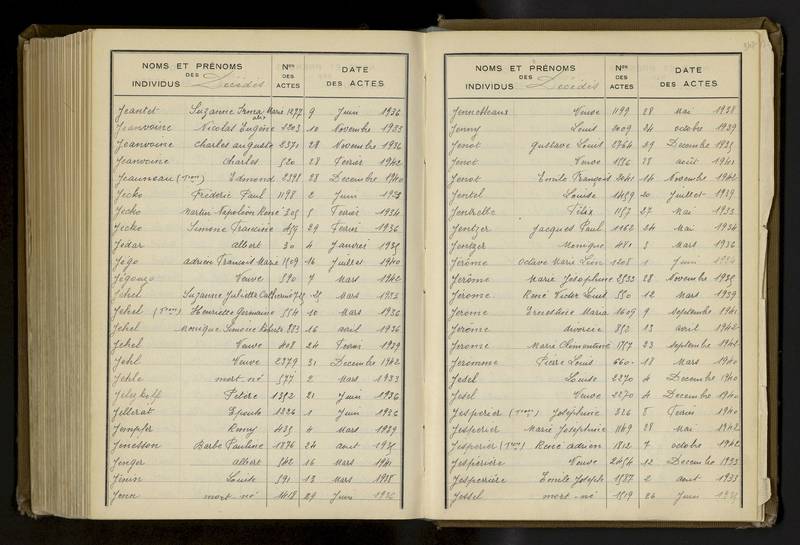 NOMS ET PRÉNOMS
DES
INDIVIDUS Décédés
Nos
DES
ACTES
DATE
DES ACTES
Jeantet Suzanne Irma Marie 1277 9 Juin 1936
Jeanvoine Nicolas Eugène 2203 10 Novembre 1933
Jeanvoine Charles auguste 2371 28 Novembre 1936
Jeanvoine Charles 520 28 Fevrier 1942
Jeauneau Edmond 2398 28 Decembre 1940
Jecko Frédéric Paul 1198 2 Juin
Jecko Martin Napoléon René 305 5 Fevrier 1934
Jecko Simone Francine 459 29 Fevrier 1936
albert 30 4 Janvier 1935
Jégo adrien François Marie 1509 16 Juillet 1940
Veuve 590 7 Mars 1942
Jehel Suzanne Juliette Catherine 725 25 Mars 1933
Jehel Henriette Germaine 554 10 Mars 1936
Jehel Monique Simone Roberte 883 16 août 1936
Jehel Veuve 408 24 Fevrier 1939
Jehl Veuve 2379 31 Decembre 1942
Jehle mort-né 577 2 Mars 1933
Pétère 1392 21 Juin 1936
Jellerat Epouse 1226 1 Juin 1936
Jempfer Remy 435 4 Mars 1939
Jenesson Barbe Pauline 1876 24 aout 1935
Jenger Albert 542 16 Mars 1941
Jenin Louise 591 13 Mars 1938
Jenn mort-né 1418 29 Juin 1936
NOMS ET PRÉNOMS
DES
INDIVIDUS Décédés
Nos
DES
ACTES
DATE
DES ACTES
Jennetteaux Veuve 1199 28 Mai 1938
Jenny Louis 2009 24 octobre 1939
Jenot Gustave Louis 2764 29 Decembre 1935
Jenot Veuve 1556 28 août 1941
Jenot Emile François 2041 14 Novembre 1942
Jentel Louise 1459 20 Juillet 1939
Félix 1157 27 Mai 1933
Jentzer Jacques Paul 1162 24 Mai 1934
Jentzer Monique 481 3 Mars 1936
Jérôme octave Marie Léon 1208 1 Juin 1934
Jérôme Marie Josephine 2533 28 Novembre 1935
Jérome René Victor Louis 550 12 Mars 1939
Jerome Ernestine Maria 1609 9 septembre 1941
Jérôme divorcée 852 13 avril 1942
Jerome Marie Clémentine 1757 23 septembre 1942
Jeromme Pierre Louis 660 18 Mars 1940
Jesel Louise 2270 4 Decembre 1940
Jesel Veuve 2270 4 Decembre 1940
Jesperier Joséphine 326 5 Fevrier 1940
Jesperier Marie Josephine 1149 28 Mai 1942
Jesperier René adrien 1812 7 octobre 1942
Jesperière Veuve 2454 12 Decembre 1933
Jesperrière Emile Joseph 1587 2 aout 1933
Jessel mort-né 1519 26 Juin